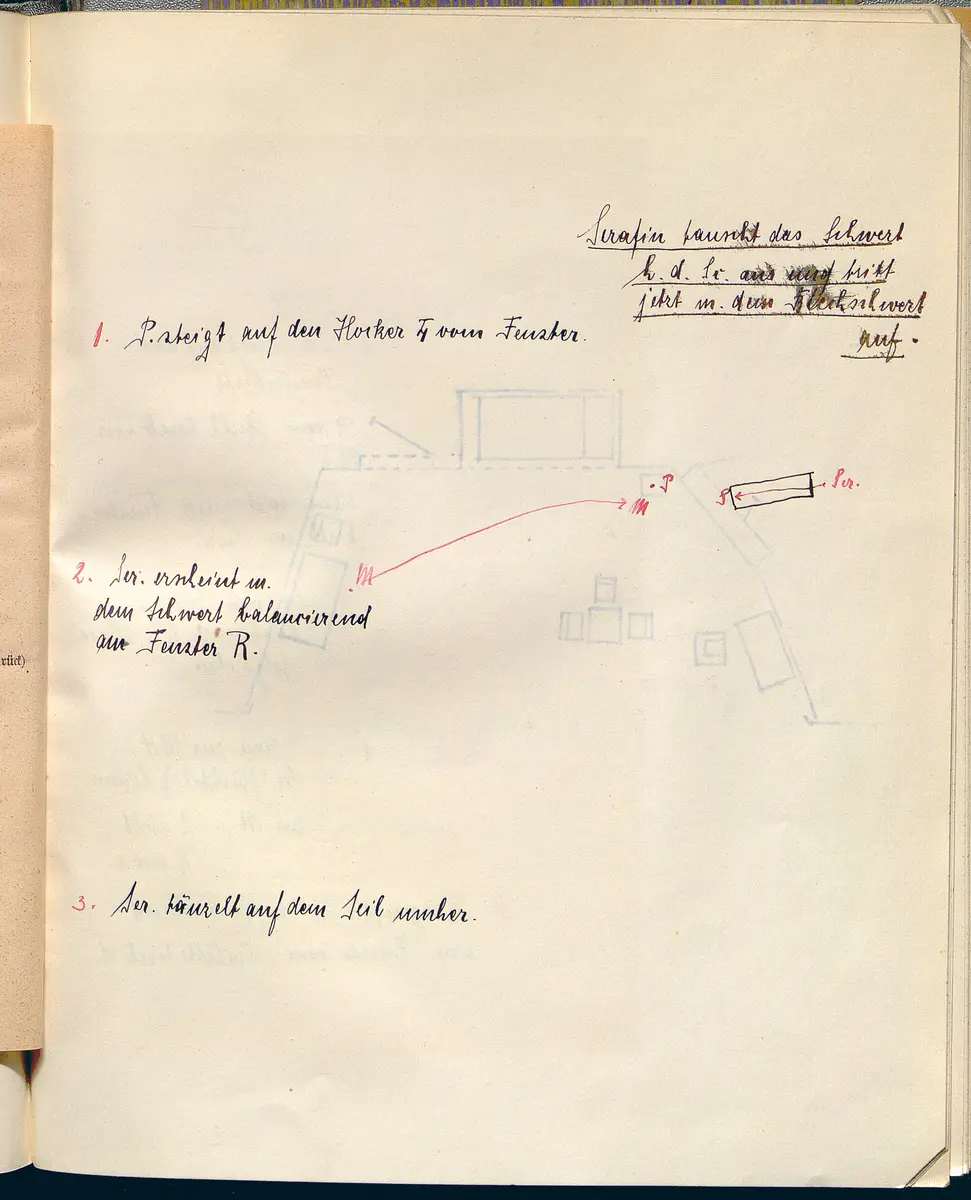 Serafin tauscht das Schwert
h. d. Sc. aus und tritt
jetzt m. dem Blechschwert
auf.
1. P. steigt auf den Hocker vom Fenster.
P
M
S
Ser.
M
2. Ser. erscheint m.
dem Schwert balancierend
am Fenster R.
rück)
3. Ser. tänzelt auf dem Seil umher.